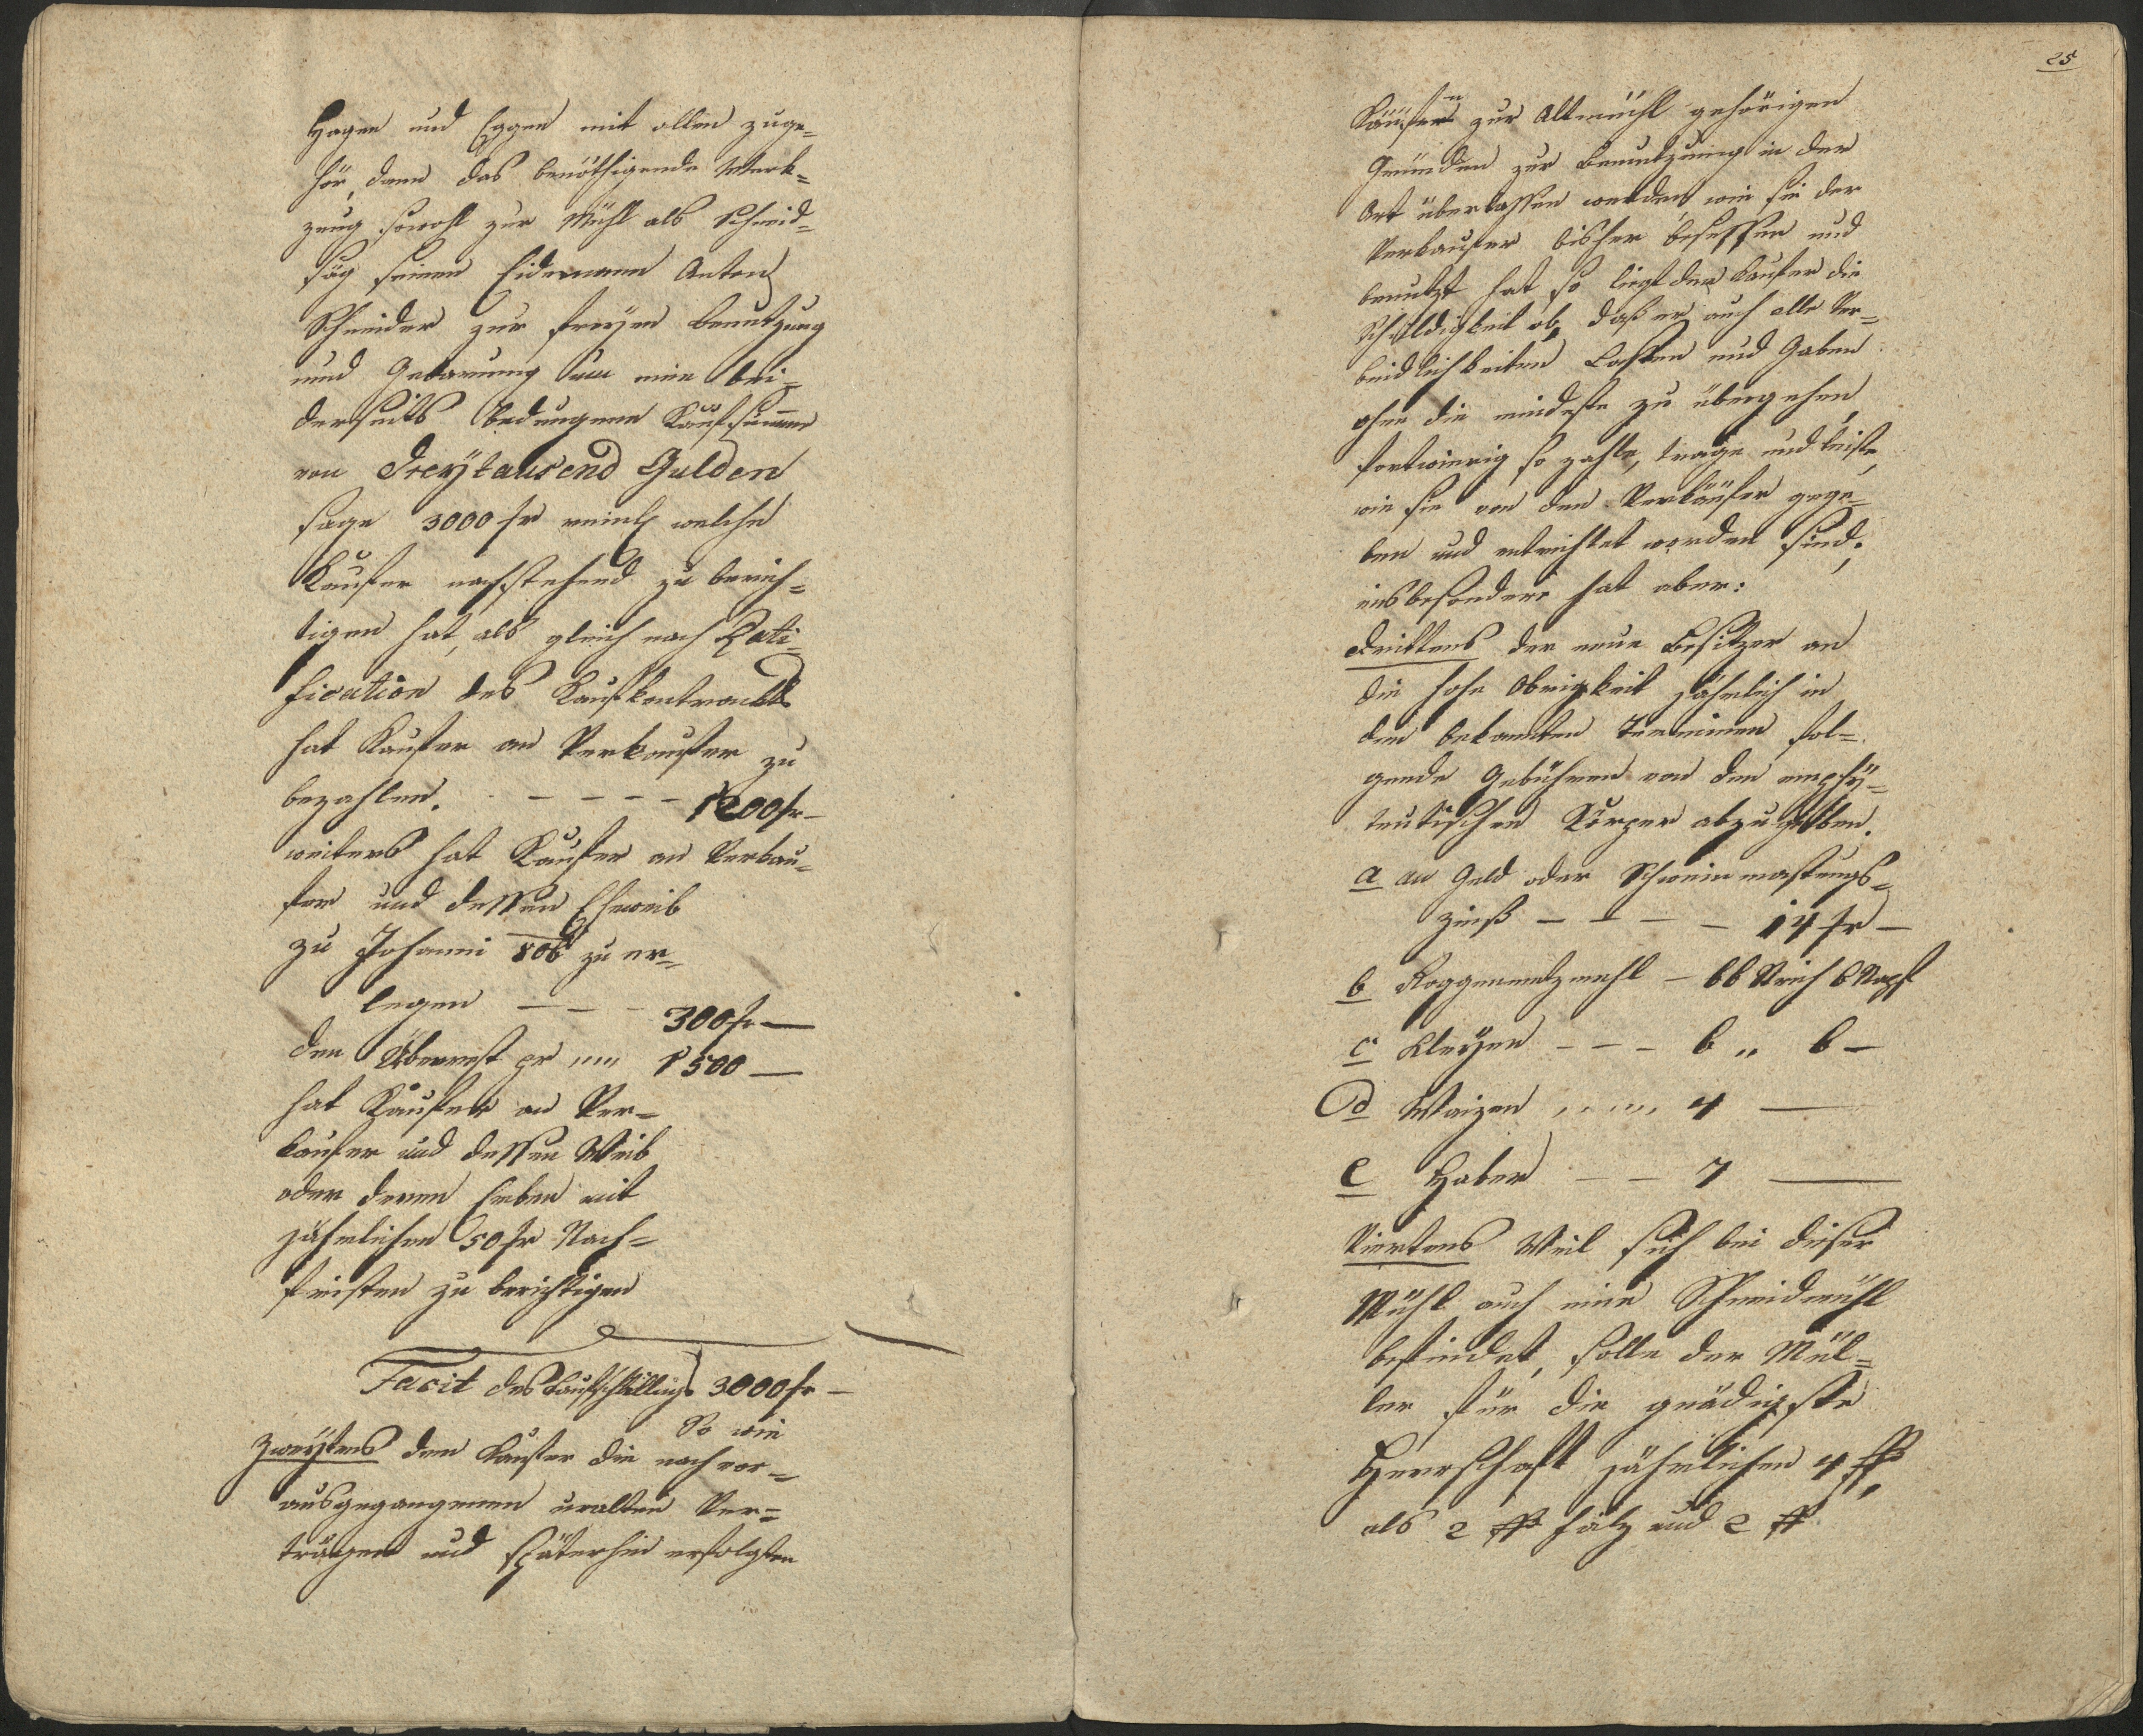 Hagen und Eggen mit allen zuge=
hör, dann das benöthigende Werk=
zeug sowohl zur Mühl als Schneid=
säg seinem Eidemann Anton
Schneider zur freyen Benutzung
und Gebarung um eine bei=
derseits bedungene Kaufsumme
von Dreytausend Gulden
sage 3000 fr welche
Kaufer nachstehend zu berich=
tigen hat, als gleich nach Rati=
fication des Kaufkontrackts
hat Kaufer an Verkaufer zu
bezahlen. - - - - 1200 fr -
weiters hat Kaufer an Verkau=
fer und dessen Eheweib
zu Johanni 806 zu er=
legen - - - 300 fr -
den Überrest pr 1500 -
hat Käufer an Ver=
kaufer und dessen Weib
oder deren Erben mit
jährlichen 50 fr Nach=
fristen zu berichtigen
Facit des Kaufschillings 3000 fr -
So wie
Zweytens dem Kaufer die nach vor=
ausgegangenen uralten Ver=
trägen und späterhin erfolgten
25
Käufen zur Altmühl gehörigen
Gründen zur Benutzung in der
Art überlassen werden, wie sie der
Verkaufer bisher besessen und
benutzt hat, so liegt dem Kaufer die
Schuldigkeit ob, daß er auch alle Ver=
bindlichkeiten Lasten und Gaben
ohne die mindeste zu übergehen,
fortwierig so zahle, trage und leiste,
wie sie von dem Verkäufer gege=
ben und entrichtet worden sind;
insbesondere hat aber:
Drittens der neue Besitzer an
die hohe Obrigkeit jährlich in
den bekannten Terminen fol=
gende Gebühren von dem emphy=
teutischen Körper abzugeben.
a an Geld oder Schweinmastungs=
zinß - - - - 14 fr -
b Roggenmetzmehl - 66 Strich 6 Napf
c Kleyen - - - 6 „ 6 -
d Waizen 4 -
e Haber - - 7 -
Viertens Weil sich bei dieser
Mühl auch eine Schneidmühl
befindet, solle der Mül=
ler für die gnädigste
Herrschaft jährlichen 4 ßß,
als 2 ßß holz und 2 ßß